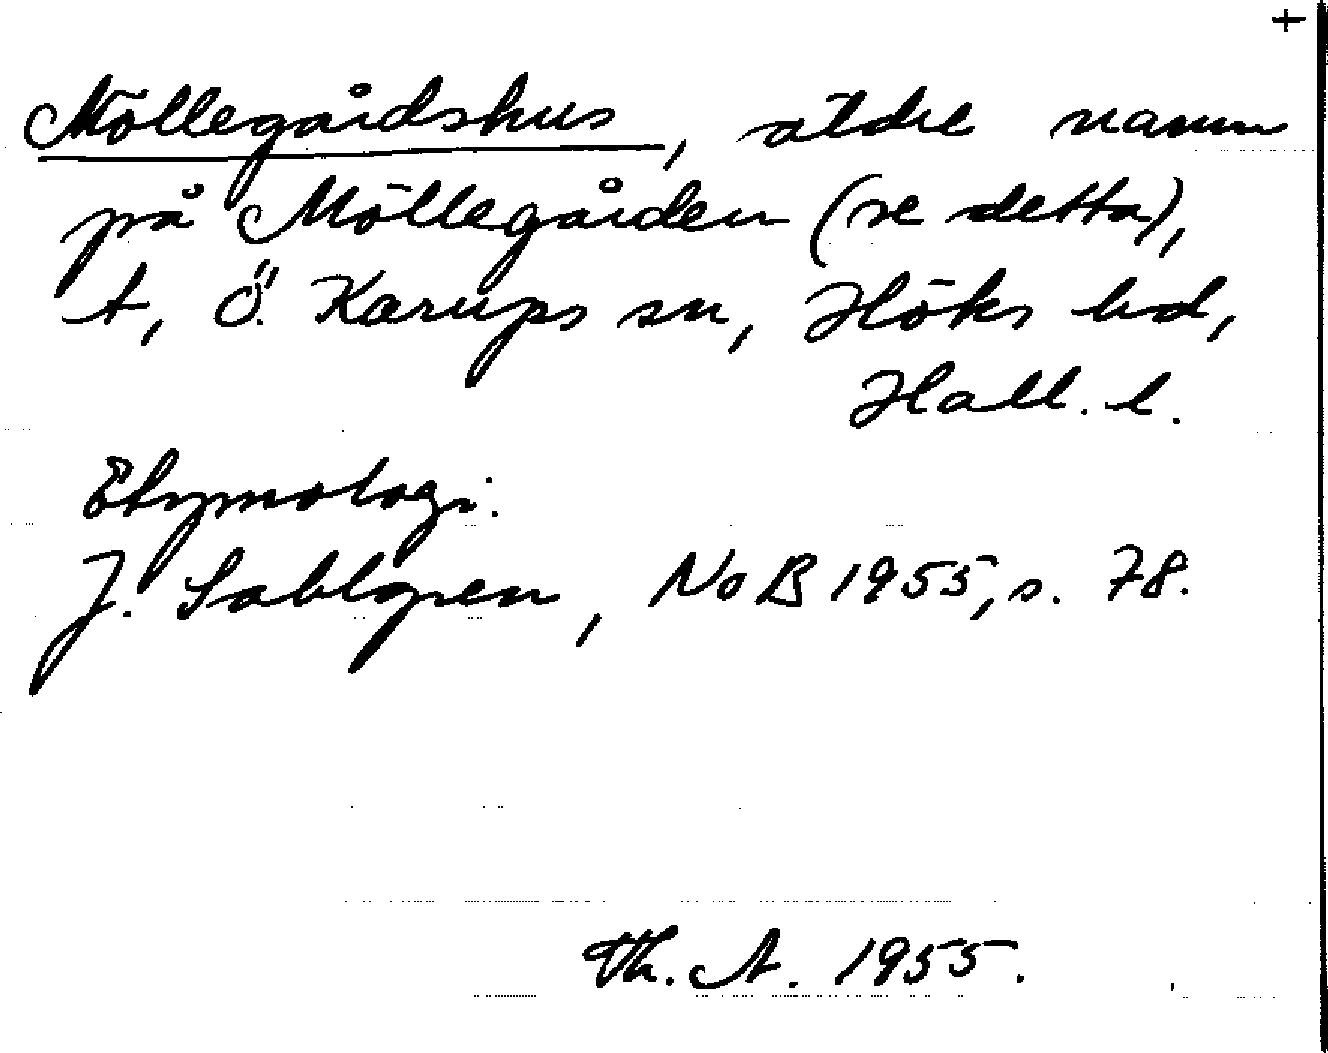 +
Möllegårdshus, äldre namn
på Möllegården (se detta),
t, Ö. Karups sn, Höks hd,
Hall. l.
Etymologi:
J. Sahlgren, NoB 1955, s. 78.
Th. A. 1955.